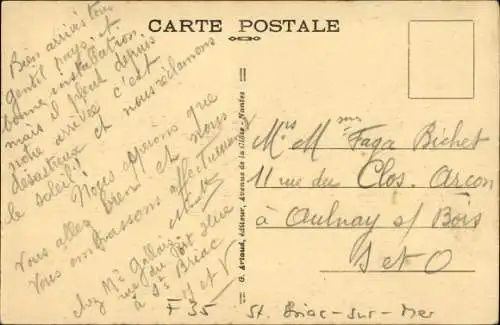 CARTE POSTALE
Bien arrivés tous
gentil pays, et
bonne installation
mais il pleut depuis
notre arrivée c'est
désastreux et nous réclamons
le soleil!
Nous espérons que
vous allez bien et nous
vous embrassons affectueusement
chez Mr Gallais
rue du
à St Briac
I et V
F 35
G. Artaud, éditeur, Avenue de la Gilde - Nantes
Mrs M Faga Bichet
11 rue du Clos. Arcon
à Aulnay s/ Bois
S et O
St. Briac-sur-Mer